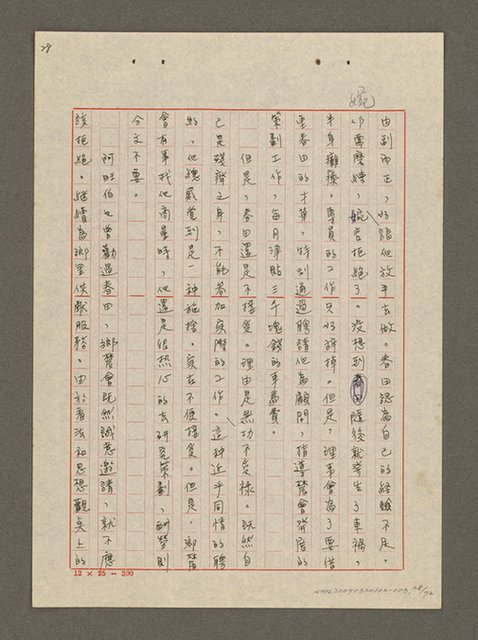 29
婉
由副而正，好讓他放手去做。春田認為自己的經驗不足，
仍需磨練，婉言拒絕了。沒想到春田隨後就發生了車禍，
半身癱瘓。專員的工作只好辭掉。但是，理事會為了要借
重春田的才華，特別通過聘請他為顧問，指導農會發展的
策劃工作，每月津貼三千塊錢的車馬費。
但是，春田還是不接受。理由是無功不受祿。既然自
己是殘廢之身，不能參加實際的工作。這種近乎同情的聘
約，他總感覺到是一種施捨。實在不便接受。但是，鄉農
會有事找他商量時，他還是很熱心的去研究策劃，酬勞則
分文不要。
阿旺伯也曾勸過春田，鄉農會既然誠意邀請，就不應
該拒絕。繼續為鄉里供獻服務。由於看法和思想觀點上的
12 × 25 = 300